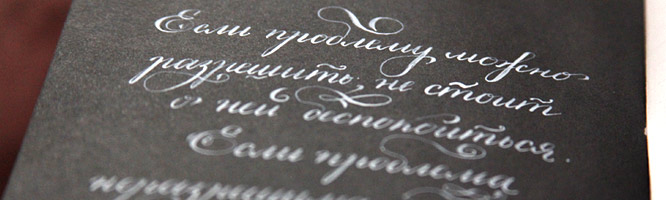 Если проблему можно
разрешить, не стоит
о ней беспокоиться.
Если проблема
неразрешима